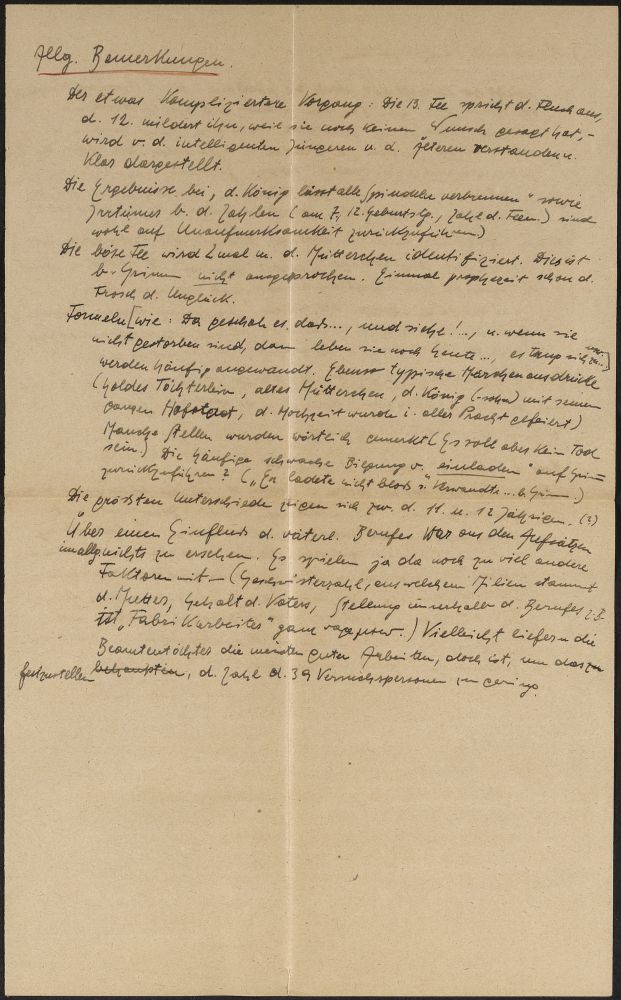 Allg. Bemerkungen.
Der etwas Kompliziertere Vorgang: Die 13. Fee spricht d. Fluch aus,
d. 12. mildert ihn, weil sie noch keinen Wunsch gesagt hat, –
wird v. d. intelligenten Jüngeren u. d. Älteren verstanden u.
klar dargestellt.
Die Ergebnisse bei, d. König lässt alle Spindeln verbrennen" sowie
Irrtümer b. d. Zahlen (am 7., 12. Geburtstg., Zahl d. Feen.) sind
wohl auf Unaufmerksamkeit zurückzuführen.)
Die böse Fee wird 2 mal m. d. Mütterchen identifiziert. Dies ist
b. Grimm nicht ausgesprochen. Einmal prophezeit schon d.
Frosch d. Unglück.
Formeln [wie: Da geschah es, dass..., und siehe!..., u. wenn sie
nicht gestorben sind, dann leben sie noch heute..., es trug sich nun zu...]
werden häufig angewandt. Ebenso typische Märchenausdrücke
(holdes Töchterlein, altes Mütterchen, d. König (-sohn) mit seinem
ganzen Hofstaat, d. Hochzeit wurde i. aller Pracht gefeiert)
Manche Stellen wurden wörtlich gemerkt (Es soll aber kein Tod
sein.) Die häufige schwache Biegung v. „einladen" auf Grimm
zurückzuführen? („Er ladete nicht blos s. Verwandte... b. Grimm.)
Die grössten Unterschiede zeigen sich zw. d. 11. u. 12 Jährigen. (?)
Über einen Einfluss d. väterl. Berufes war aus den Aufsätzen
im allg. nichts zu ersehen. Es spielen ja da noch zu viel andere
Faktoren mit. – (Geschwisterzahl, aus welchem Milieu stammt
d. Mutter, Gehalt d. Vaters, Stellung innerhalb d. Berufes z. B.
ist „Fabrikarbeiter" ganz vag usw.) Vielleicht liefern die
Beamtentöchter die meisten guten Arbeiten, doch ist, um das zu
festzustellen behaupten, d. Zahl d. 39 Versuchspersonen zu gering.